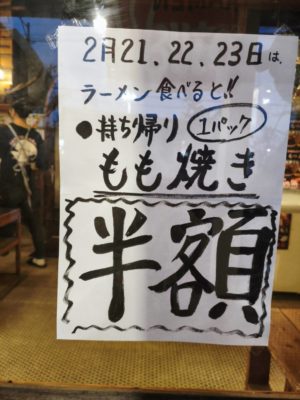 2月21.22.23日は、
ラーメン食べると!!
●持ち帰り 1パック
もも焼き
半額